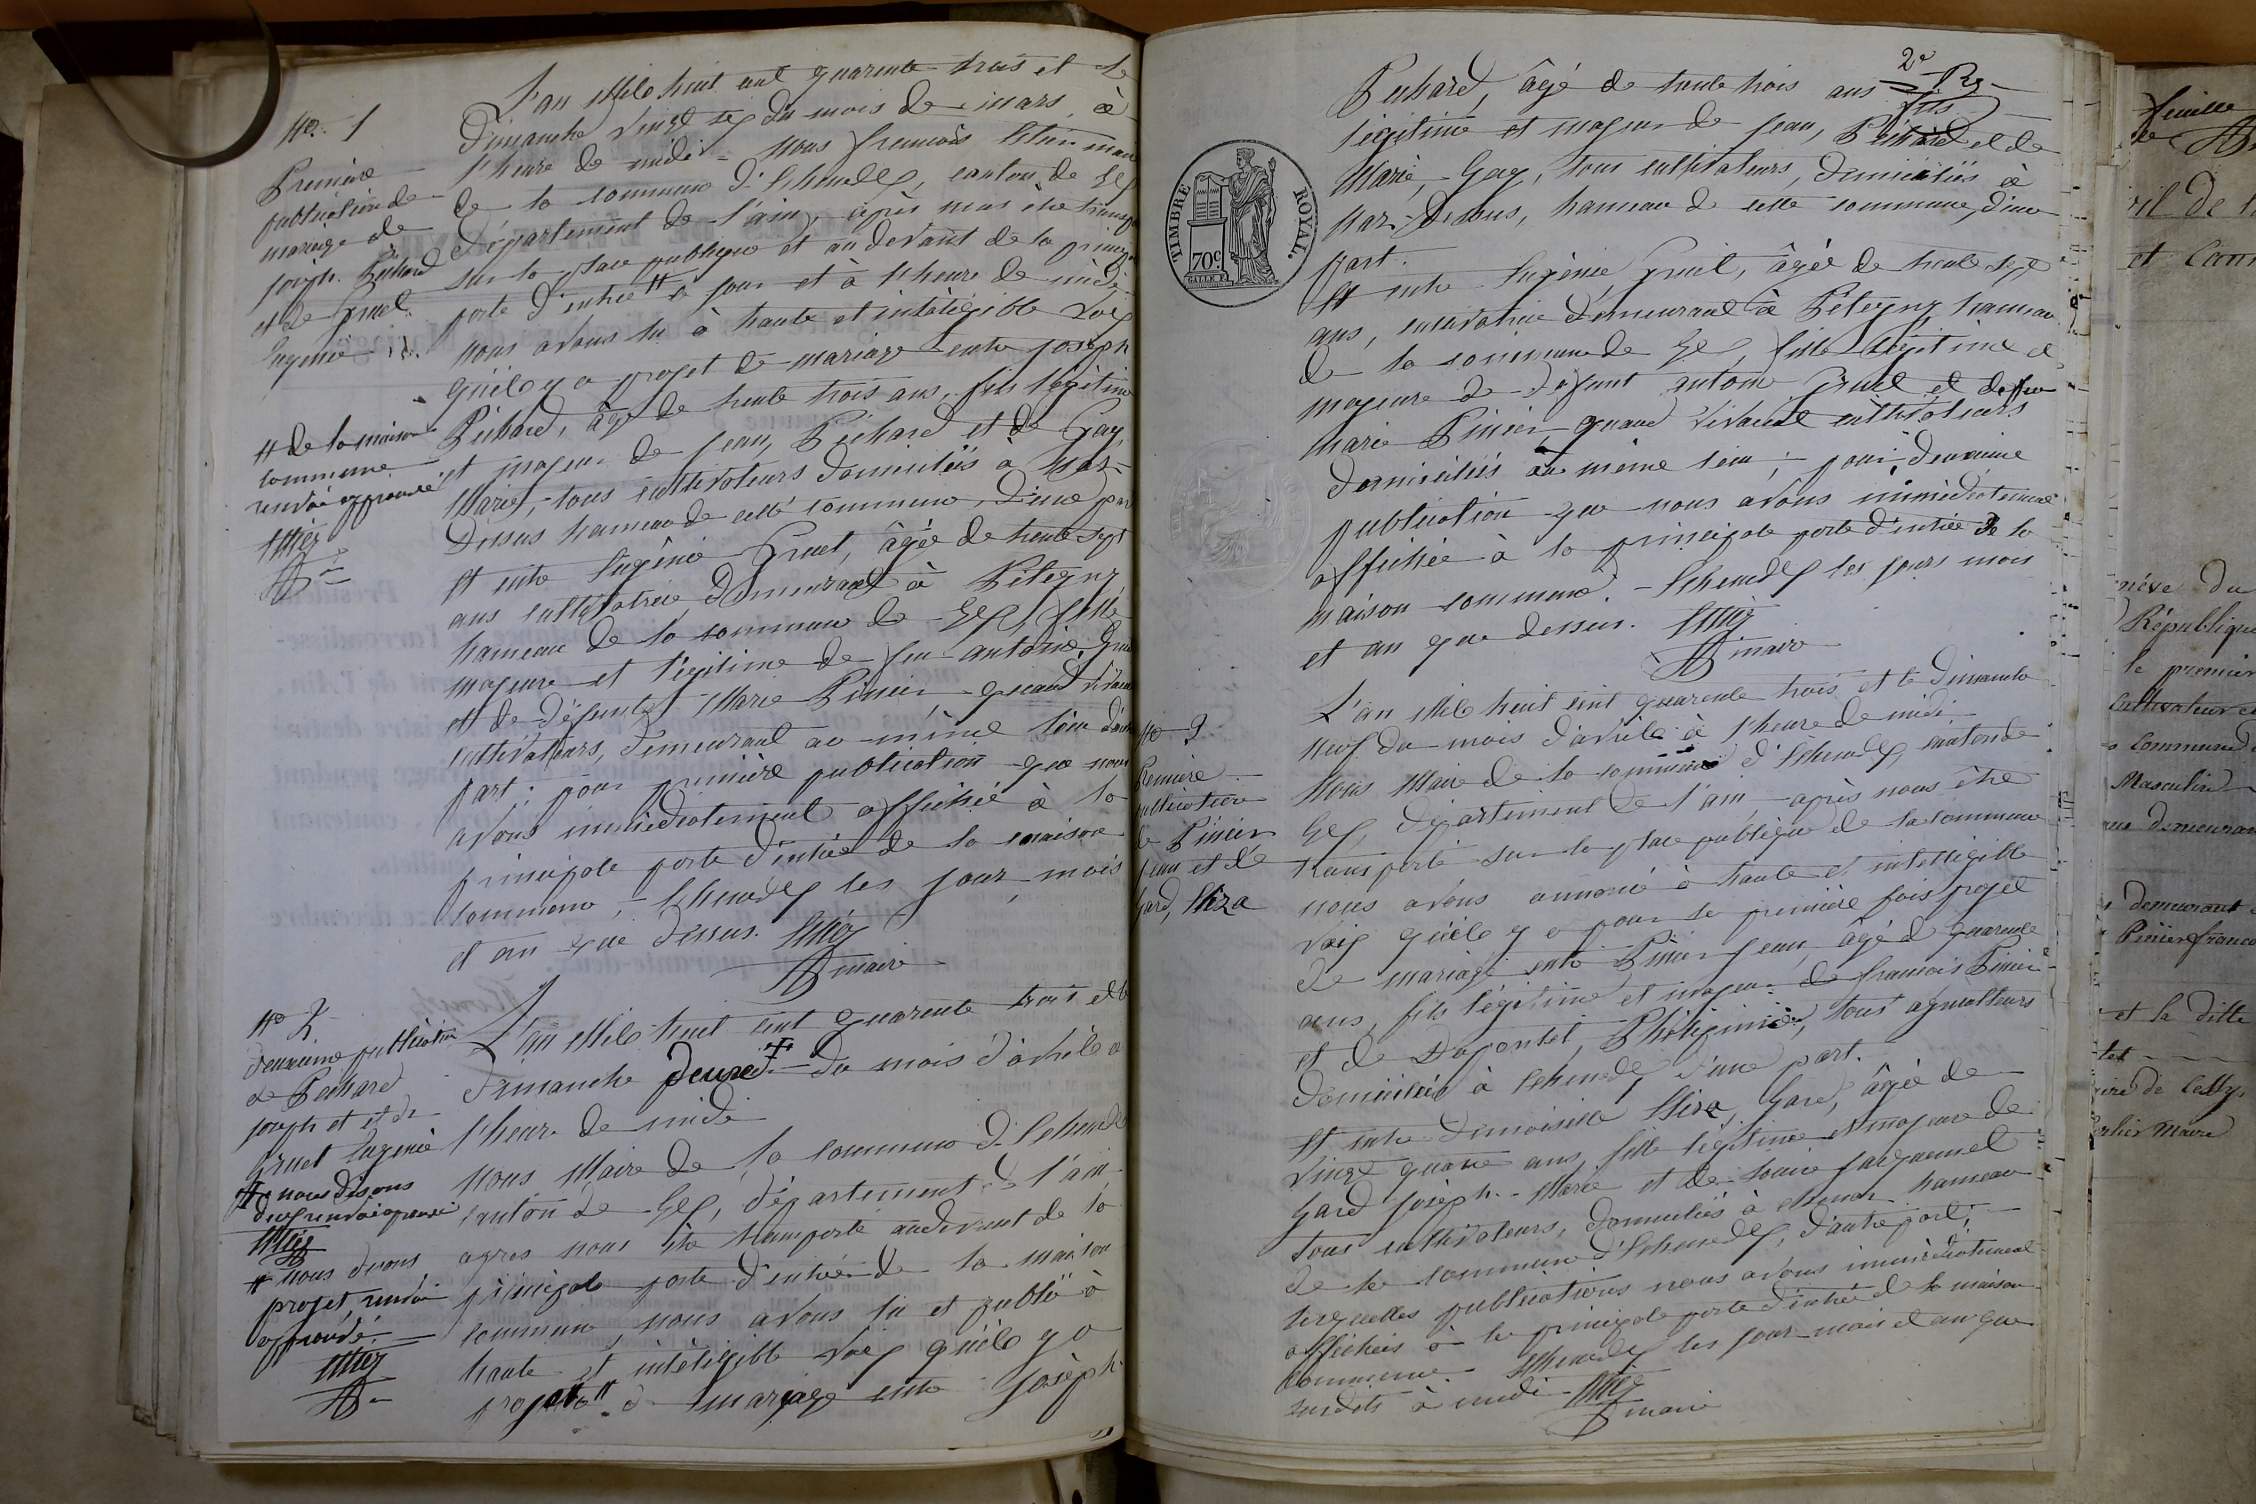 No. 1
Première
publication de
mariage de
joseph. Péchard
et de Gruel
Eugenie
L'an Mile huit cent quarente trois et le
Dimanche vingt six du mois de mars, à
l'heure de midi - Nous francois maire
de la commune d'Echenevex, canton de Gex
département de l'ain, après nous être transporté
sur la place publique et au devant de la principale
porte d'entrée # le jour et à l'heure de midi
nous avons lu à haute et intéligible voix
quíl y a projet de mariage entre joseph
Péchard, âgé de trente trois ans, fils légitime
et majeur de jean, Péchard et de Gay,
Marie, tous cultivateurs domiciliés à Naz-
Dessus hameau de cette commune, d'une part
Et entre Eugénie Gruel, âgée de trente sept
ans cultivatrice demeurant à Pitegny,
hameau de la commune de Gex, fille
majeure et légitime de feu antoine, Gruel
et de défunte Marie Pinier quand vivaient
cultivateurs, demeurant au même lieu d'autre
part; pour première publication que nous
avons immediatement affichée à la
principale porte d'entrée de la maison
commune, - Echenevex les jour, mois
et an que dessus.
maire
# de la maison
commune
renvoi approuvé
No 2
deuxième publication
de Péchard
joseph et et de
Gruel Eugenie
# nous disons
deux renvoi aprouvé
# nous disons
projet, renvoi
approuvé.
L'an Mile huit cent quarente trois et le
dimanche deuxe # du mois d'avril à
l'heure de midi
Nous Maire de la commune d'Echenevex
canton de Gex, département de l'ain,
apres nous être transporté audevant de la
principale porte d'entrée de la maison
commune, nous avons lu et publié à
haute et intéligible voix quíl y a
projet # de mariage entre Joseph
2e
Péchard, âgé de trente trois ans fils
légitime et majeur de jean, Péchard et de
Marie, Gay, tous cultivateurs, domiciliés à
Naz-Dessus, hameau de cette commune, d'une
part.
TIMBRE ROYAL.
70c
Et entre Eugènie, Gruel, âgée de trente sept
ans, cultivatrice demeurant à Pitegny hameau
de la commune de Gex, fille légitime et
majeure de défunt antoine Gruel et de feu
marie Pinier quand vivaient cultivateurs
domiciliés au même lieu; pour deuxième
publication que nous avons immédiatement
affichée à la principale porte d'entrée de la
maison commune. - Echenevex les jours mois
et an que dessus.
maire
No 3
Première
publication
de Pinier
jean et de
Gard, Eliza
L'an Mile huit cent quarente trois et le dimanche
neuf du mois d'avril à l'heure de midi
Nous Maire de la commune d'Echenevex, canton de
Gex, département de l'ain, après nous être
transporté sur la place publique de la commune
nous avons annoncé à haute et intelligible
voix quíl y a pour la première fois projet
de mariage entre Pinier jean, âgé de quarente
ans, fils légitime et majeur de francois Pinier
et de Dupontet, Pheliginie, tous agriculteurs
domiciliés à Echenevex d'une part.
Et entre demoiselle Eliza, Gard, âgée de
vingt quatre ans, fille légitime et majeure de
Gard joseph. Marie et de
tous cultivateurs, domiciliés à hameau
de la commune d'Echenevex, d'autre part;
lesquelles publications nous avons immédiatement
affichées à la principale porte d'entrée de la maison
commune. Echenevex les jour mois et an que
susdits à midi
maire
feuille
et
Genève du
République
le premier
Cultivateur
commune d
Masculin
demeurant
Pinier franco
et la ditte
Cessy,
Maire